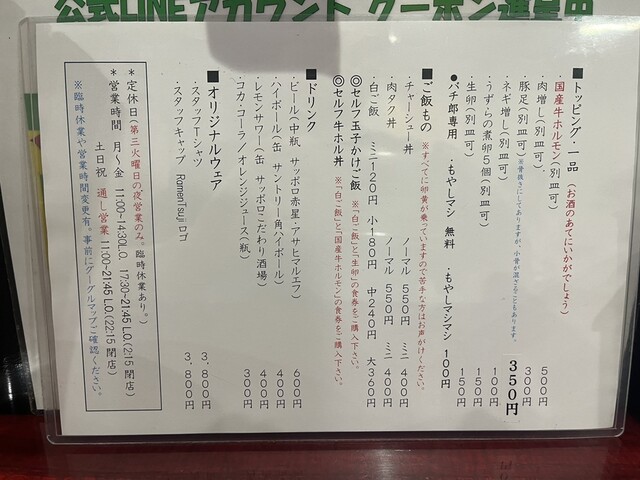 公式LINEアカウント クーポン進呈中
■トッピング・一品 (お酒のあてにいかがでしょう)
・国産牛ホルモン(別皿可) 500円
・肉増し(別皿可) 300円
・豚足(別皿可) ※骨抜きにしてありますが、小骨が混ざることもあります。 350円
・ネギ増し(別皿可) 100円
・うずらの煮卵5個(別皿可) 150円
・生卵(別皿可) 150円
●バチ郎専用 ・もやしマシ 無料 ・もやしマシマシ 100円
■ご飯もの ※すべてに卵黄が乗っていますので苦手な方はお声がけください。
・チャーシュー丼 ノーマル 550円 ミニ 400円
・肉タク丼 ノーマル 550円 ミニ 400円
・白ご飯 ミニ120円 小180円 中240円 大360円
◎セルフ玉子かけご飯 ※「白ご飯」と「生卵」の食券をご購入下さい。
◎セルフ牛ホル丼 ※「白ご飯」と「国産牛ホルモン」の食券をご購入下さい。
■ドリンク
・ビール(中瓶 サッポロ赤星・アサヒマルエフ) 600円
・ハイボール(缶 サントリー角ハイボール) 400円
・レモンサワー(缶 サッポロこだわり酒場) 400円
・コカ・コーラ/オレンジジュース(瓶) 300円
■オリジナルウェア
・スタッフTシャツ 3,800円
・スタッフキャップ RamenTsujiロゴ 3,800円
*定休日(第三火曜日の夜営業のみ。臨時休業あり。)
*営業時間 月〜金 11:00~14:30L.O. 17:30~21:45L.O.(22:15閉店)
土日祝 通し営業 11:00~21:45L.O.(22:15閉店)
※臨時休業や営業時間変更有。事前にグーグルマップご確認ください。